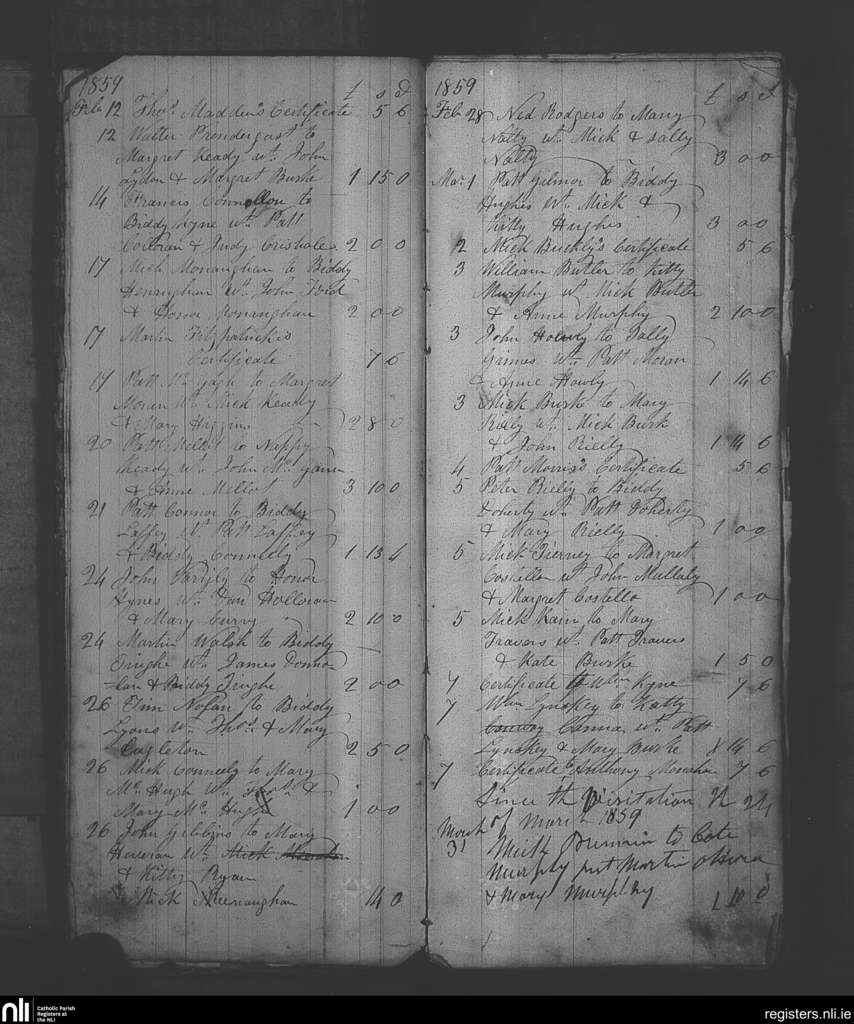 1859
£ s d
Feb 12 Thos. Madden's Certificate 5 6
12 Walter Prendergast to
Margret Keady wt. John
Lydon & Margret Burke 1 15 0
14 Francis Connellon to
Biddy Kyne wt. Patt
Corcoran & Judy 2 0 0
17 Mick Monaughan to Biddy
Henaughan wt. John
& Honor Monaughan 2 0 0
17 Martin Fitzpatrick's
Certificate 7 6
17 Patt Mc. to Margret
Moran wt. Mick Keady
& Mary Higgins 2 8 0
20 Patt Mellot to Nappy
Keady wt. John Mc.
& Anne Mellot 3 10 0
21 Patt Connor to Biddy
Laffey wt. Patt Laffey
& Biddy Connely 1 13 4
24 John to Honor
Hynes wt. Dan Holloran
& Mary Curry 2 10 0
24 Martin Walsh to Biddy
Tinghe wt. James Donno
=lan & Biddy Tinghe 2 0 0
26 Tim Nolan to Biddy
Lyons wt. Thos. & Mary
Eagleton 2 5 0
26 Mick Conneely to Mary
Mc. Hugh wt. &
Mary Mc. Hugh 1 0 0
26 John Gibbins to Mary
Heveran wt. Mick
& Kitty Ryan
Mick Heenaughan 14 0
1859
£ s d
Feb 28 Ned Rodgers to Mary
Nalty wt. Mick & Sally
Nalty 3 0 0
Mar. 1 Patt Gilmor to Biddy
Hughes wt. Mick &
Kitty Hughes 3 0 0
2 Mick Buckly's Certificate 5 6
3 William Butler to Kitty
Murphy wt. Mick Butler
& Anne Murphy 2 10 0
3 John Howly to Sally
Grimes wt. Patt Moran
& Anne Howly 1 14 6
3 Mick Burke to Mary
Rielly wt. Mick Burk
& John Rielly 1 14 6
4 Patt Morris's Certificate 5 6
5 Peter Rielly to Biddy
Doherty wt. Patt Doherty
& Mary Rielly 1 0 0
5 Mick Tierney to Margret
Costello wt. John Mullaly
& Margret Costello 1 0 0
5 Mick Kain to Mary
Travers wt. Patt Travers
& Kate Burke 1 5 0
7 Certificate to Wm. Kyne 7 6
7 Wm. Lynskey to Katty
Conway Canna wt. Patt
Lynskey & Mary Burke 14 6
7 Certificate to Anthony Monahan 7 6
Since th Visitation N 24
of March 1859
March
31 Mick to Cate
Murphy pret Martin
& Mary Murphy 1 10 0
nli
Catholic Parish
Registers at
the NLI
registers.nli.ie